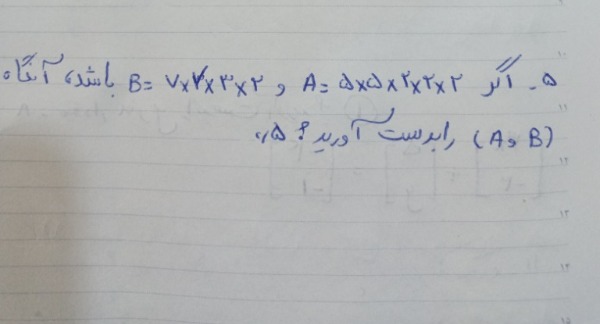 ۵۔ اگر A = ۵×۵×۲×۲×۲ و B = ۷×۲×۳×۲ باشد، آنگاه
(A و B) را بدست آورید؟ ۵،،